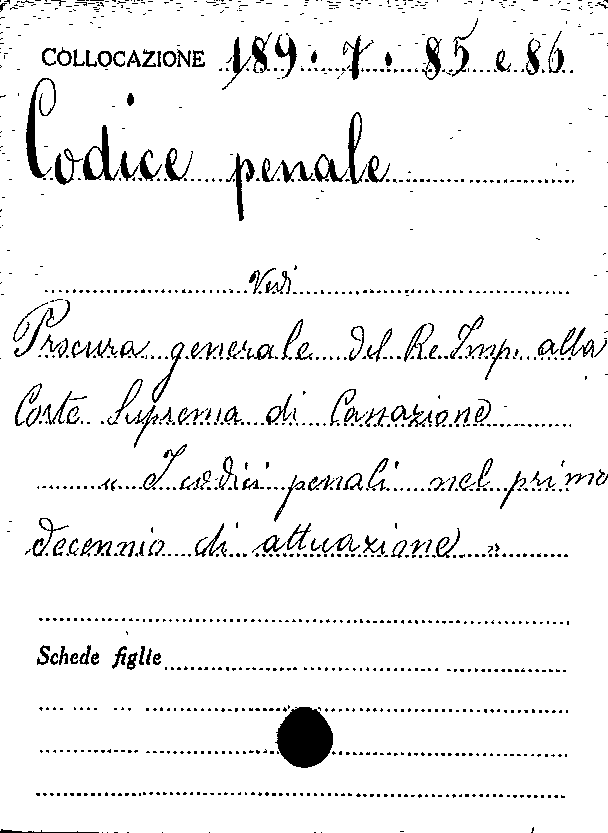 COLLOCAZIONE 189. 7. 85 e 86
Codice penale
Vedi
Procura generale del Re Imp. alla
Corte Suprema di Cassazione
" I codici penali nel primo
decennio di attuazione "
Schede figlie